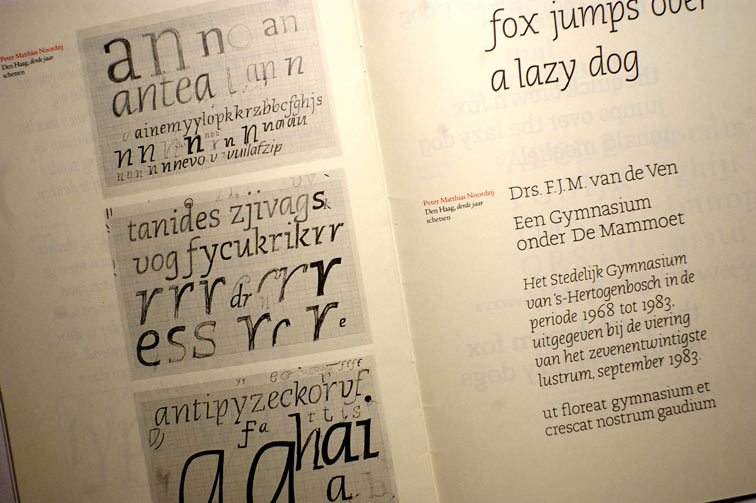 Peter Matthias Noordzij
Den Haag, derde jaar
schetsen
an n an
antea an n
ainemyylopkkrzbbcfghjs
vuilafzip
tanides zjivags
vog fycukrikrr
r r r dr r r r
ess r r r e
antipyzeckorvf
f a
r t t s
hai
a b
fox jumps over
a lazy dog
Peter Matthias Noordzij
Den Haag, derde jaar
schetsen
Drs. F.J.M. van de Ven
Een Gymnasium
onder De Mammoet
Het Stedelijk Gymnasium
van 's-Hertogenbosch in de
periode 1968 tot 1983,
uitgegeven bij de viering
van het zevenentwintigste
lustrum, september 1983.
ut floreat gymnasium et
crescat nostrum gaudium